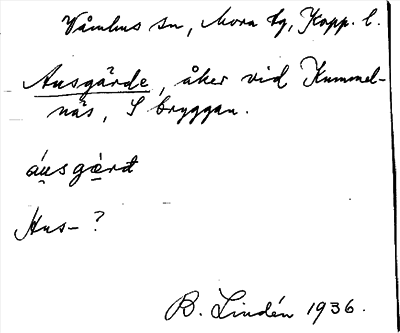 Våmhus sn, Mora tg, Kopp. l.
Ausgärde, åker vid Kummel-
näs, S bryggan.
áu̠sgà̠rđ
Hus- ?
B. Lindén 1936.